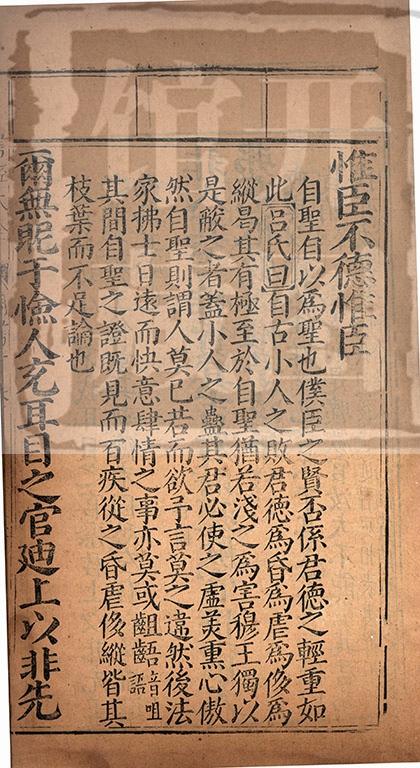 惟臣不德惟臣
自聖自以爲聖也僕臣之賢否係君德之輕重如
此呂氏曰自古小人之敗君德爲昏爲虐爲侈爲
縱曷其有極至於自聖猶若淺之爲害穆王獨以
是蔽之者蓋小人之蠱其君必使之虛美熏心傲
然自聖則謂人莫已若而欲予言莫之違然後法
家拂士日遠而快意肆情之事亦莫或齟齬音咀語
其間自聖之證既見而百疾從之昏虐侈縱皆其
枝葉而不足論也
爾無昵于憸人充耳目之官迪上以非先